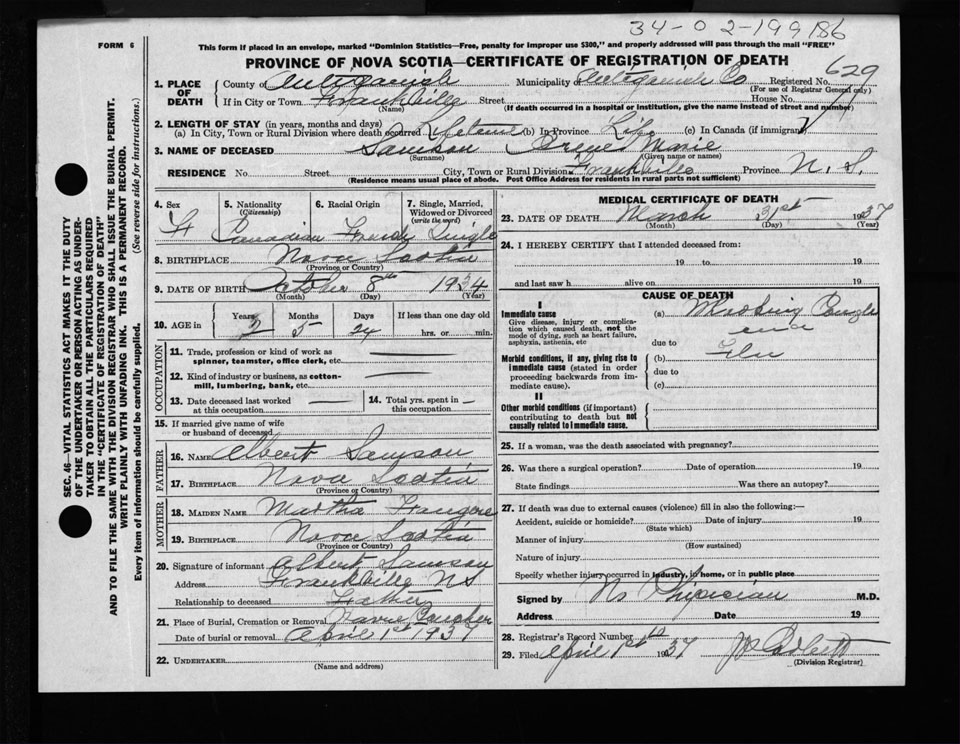 34-02-199186
FORM 6
This form if placed in an envelope, marked "Dominion Statistics—Free, penalty for improper use $300," and properly addressed will pass through the mail "FREE"
PROVINCE OF NOVA SCOTIA—CERTIFICATE OF REGISTRATION OF DEATH
629
1. PLACE OF DEATH County of Antigonish Municipality of Antigonish Co Registered No.
(For use of Registrar General only)
If in City or Town Frankville Street House No.
(Name) (If death occurred in a hospital or institution, give the name instead of street and number)
2. LENGTH OF STAY (in years, months and days)
(a) In City, Town or Rural Division where death occurred Lifetime (b) In Province Life (c) In Canada (if immigrant)
3. NAME OF DECEASED Samson Irene Marie
(Surname) (Given name or names)
RESIDENCE No. Street City, Town or Rural Division Frankville Province N. S.
(Residence means usual place of abode. Post Office Address for residents in rural parts not sufficient)
4. Sex 5. Nationality (Citizenship) 6. Racial Origin 7. Single, Married, Widowed or Divorced (write the word)
F Canadian French Single
8. BIRTHPLACE Nova Scotia
(Province or Country)
9. DATE OF BIRTH October 8th 1934
(Month) (Day) (Year)
10. AGE in Years Months Days If less than one day old
2 5 24 hrs. or min.
OCCUPATION
11. Trade, profession or kind of work as spinner, teamster, office clerk, etc.
12. Kind of industry or business, as cotton-mill, lumbering, bank, etc.
13. Date deceased last worked at this occupation
14. Total yrs. spent in this occupation.
15. If married give name of wife or husband of deceased
FATHER
16. NAME Albert Samson
17. BIRTHPLACE Nova Scotia
(Province or Country)
MOTHER
18. MAIDEN NAME Martha
19. BIRTHPLACE Nova Scotia
(Province or Country)
20. Signature of informant Albert Samson
Address Frankville NS
Relationship to deceased Father
21. Place of Burial, Cremation or Removal Havre Boucher
Date of burial or removal April 1st 1937
22. UNDERTAKER
(Name and address)
MEDICAL CERTIFICATE OF DEATH
23. DATE OF DEATH March 31st 1937
(Month) (Day) (Year)
24. I HEREBY CERTIFY that I attended deceased from:
19 to 19
and last saw h alive on 19
CAUSE OF DEATH
I
Immediate cause
Give disease, injury or complication which caused death, not the mode of dying, such as heart failure, asphyxia, asthenia, etc
(a)
and
due to Flu
Morbid conditions, if any, giving rise to immediate cause (stated in order proceeding backwards from immediate cause).
(b)
due to
(c)
II
Other morbid conditions (if important) contributing to death but not causally related to immediate cause.
25. If a woman, was the death associated with pregnancy?
26. Was there a surgical operation? Date of operation 19
State findings Was there an autopsy?
27. If death was due to external causes (violence) fill in also the following:—
Accident, suicide or homicide? Date of injury 19
(State which)
Manner of injury
(How sustained)
Nature of injury
Specify whether injury occurred in industry, in home, or in public place
Signed by No Physician M.D.
Address Date 19
28. Registrar's Record Number
29. Filed April 1st 1937
(Division Registrar)
SEC. 46—VITAL STATISTICS ACT MAKES IT THE DUTY
OF THE UNDERTAKER OR PERSON ACTING AS UNDER-
TAKER TO OBTAIN ALL THE PARTICULARS REQUIRED
IN THE "CERTIFICATE OF REGISTRATION OF DEATH"
AND TO FILE THE SAME WITH THE DIVISION REGISTRAR WHO SHALL ISSUE THE BURIAL PERMIT.
WRITE PLAINLY WITH UNFADING INK. THIS IS A PERMANENT RECORD.
Every item of information should be carefully supplied. (See reverse side for instructions.)